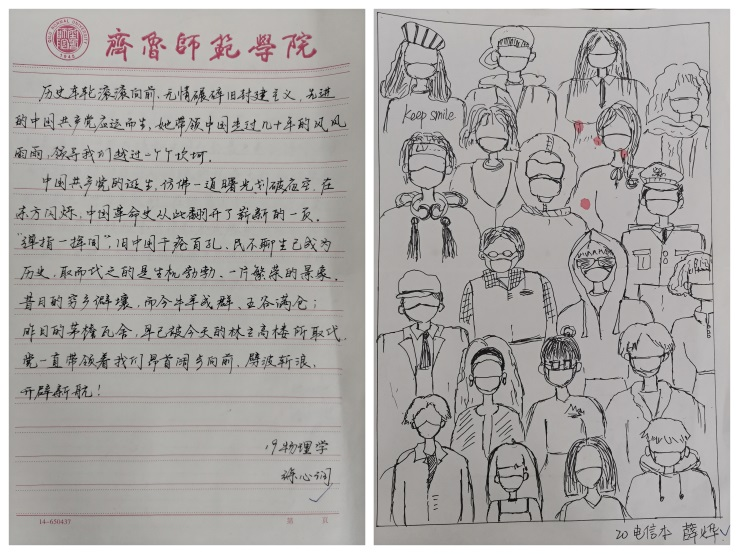 齊魯師範學院
QILU NORMAL UNIVERSITY
1948
历史车轮滚滚向前，无情碾碎旧封建主义，先进
的中国共产党应运而生，她带领中国走过几十年的风风
雨雨，领导我们越过一个个坎坷。
中国共产党的诞生，仿佛一道曙光划破夜空，在
东方闪烁，中国革命史从此翻开了崭新的一页。
“弹指一挥间”，旧中国千疮百孔、民不聊生已成为
历史，取而代之的是生机勃勃、一片繁荣的景象。
昔日的穷乡僻壤，而今牛羊成群、五谷满仓；
昨日的茅檐瓦舍，早已被今天的林立高楼所取代。
党一直带领着我们昂首阔步向前，劈波斩浪，
开辟新航！
19物理学
心词
14-650437
第 页
Keep smile
20电信本 薛烨